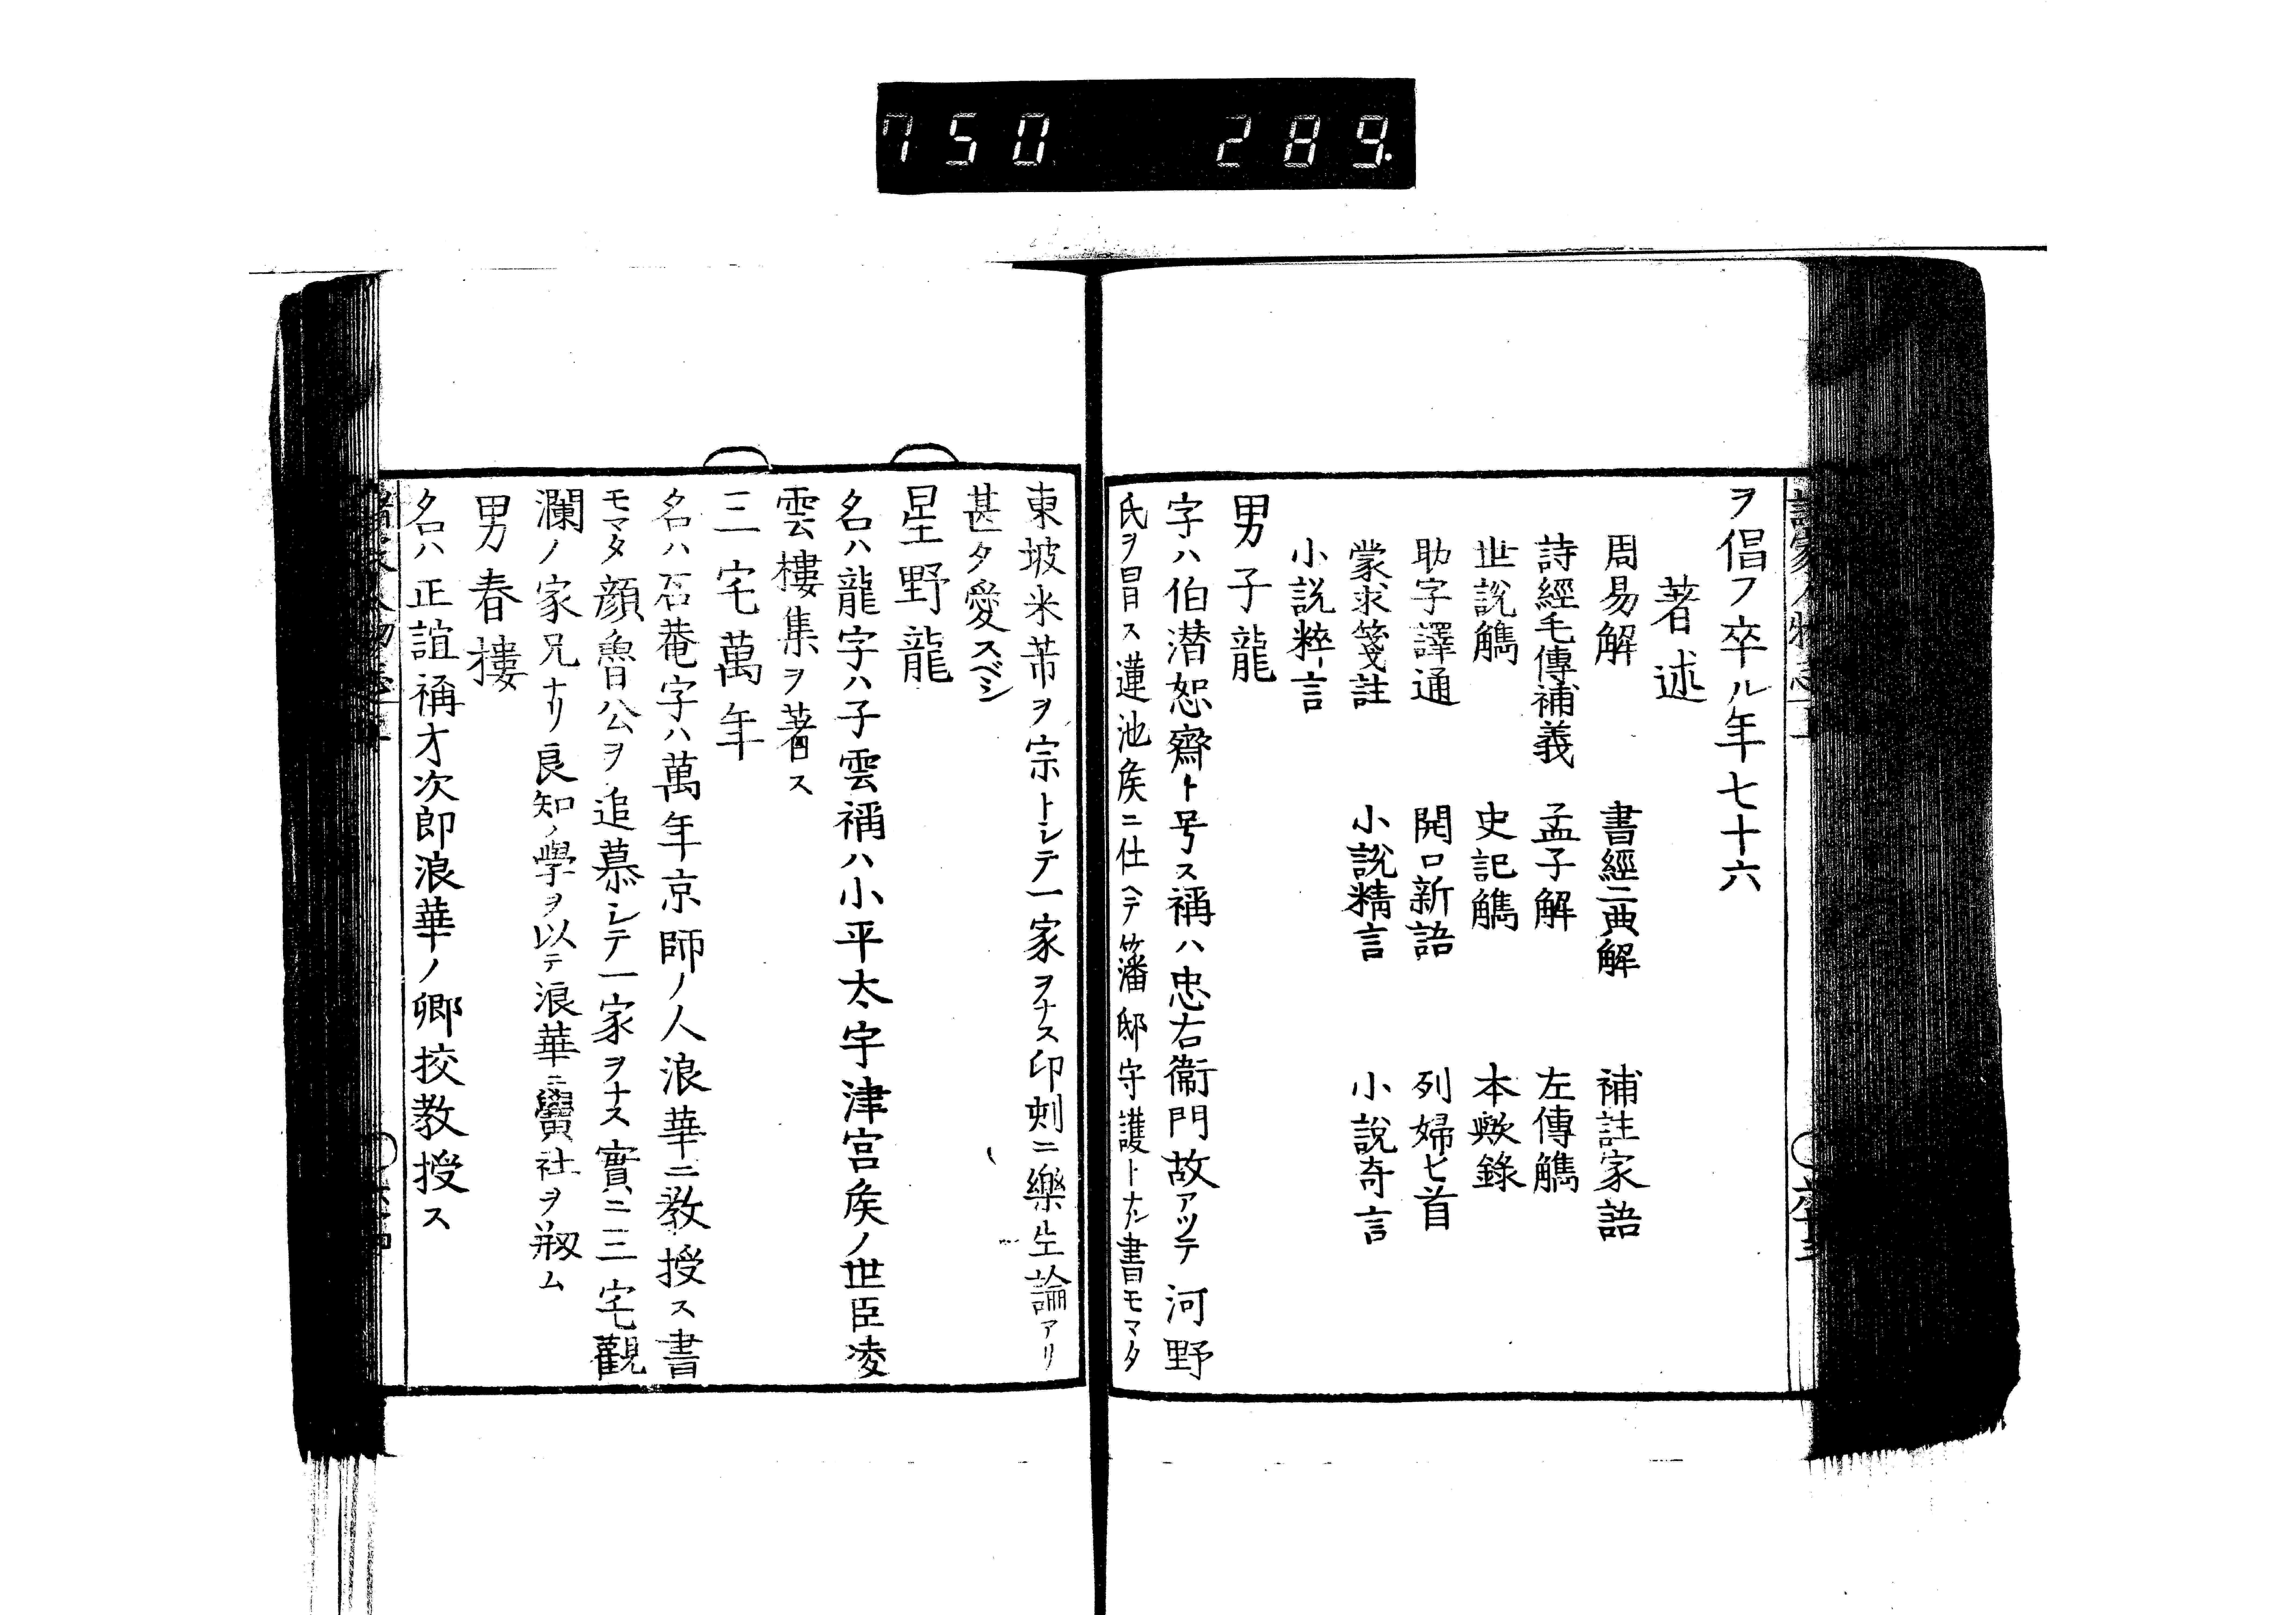 750 289.
ヲ倡フ卒ル年七十六
著述
周易解 書經二典解 補註家語
詩經毛傳補義 孟子解 左傳觿
世說觿 史記觿 本歟錄
助字譯通 開口新語 列婦匕首
蒙求箋註 小說精言 小說奇言
小說粹言
男子龍
字ハ伯潜恕齋ト号ス稱ハ忠右衞門故アツテ河野
氏ヲ冒ス蓮池矦ニ仕ヘテ藩邸守護トナル書モマタ
東坡米芾ヲ宗トシテ一家ヲナス印刻ニ樂生論アリ
甚タ愛スベシ
星野龍
名ハ龍字ハ子雲稱ハ小平太宇津宮矦ノ世臣凌
雲樓集ヲ著ス
三宅萬年
名ハ石菴字ハ萬年京師ノ人浪華ニ教授ス書
モマタ顔魯公ヲ追慕シテ一家ヲナス實ニ三宅觀
瀾ノ家兄ナリ良知ノ學ヲ以テ浪華ニ黌社ヲ剏ム
男春樓
名ハ正誼稱才次郎浪華ノ鄉挍教授ス